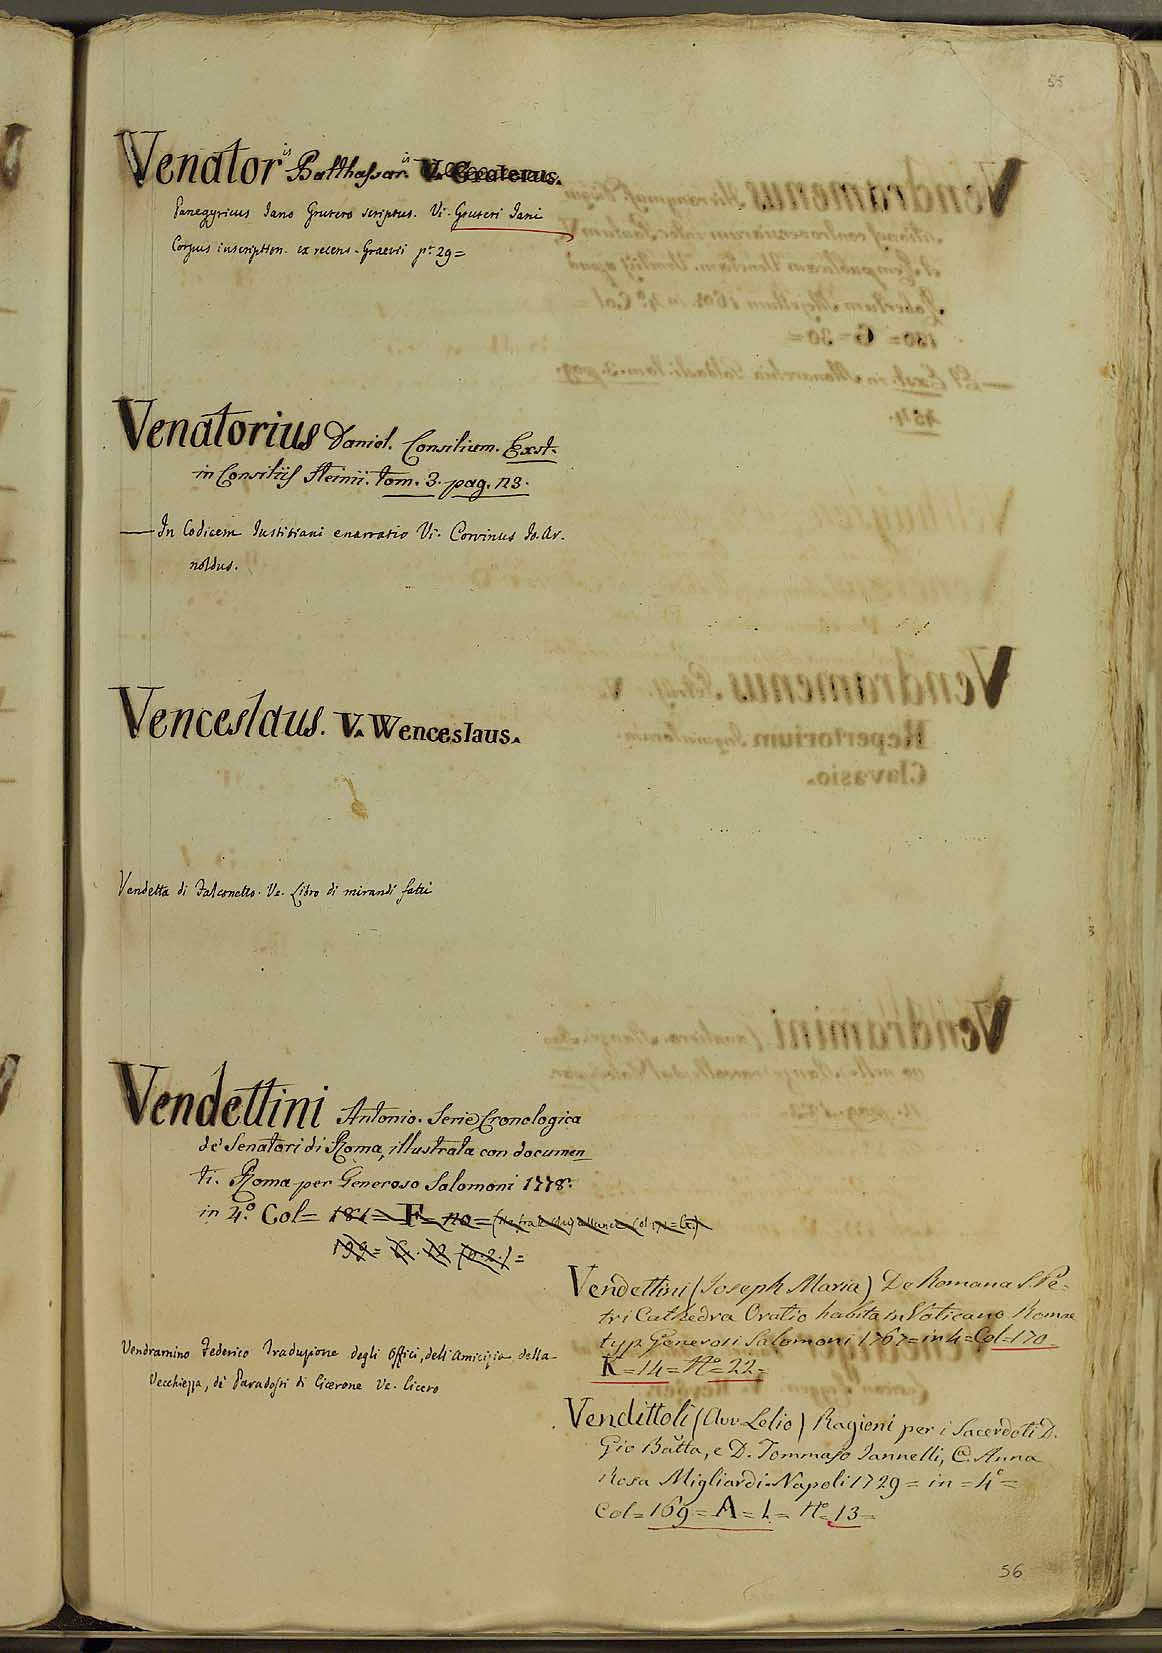 55
Venatoris Balthassaris V. Gruterus.
Panegyricus Jano Grutero scriptus. Vi. Gruteri Jani
Corpus inscription. ex recens. Graevii pr. 29=
Venatorius Daniel. Consilium. Exst.
in Consiliis Heinii. tom. 3. pag. 113.
— In Codicem Justiniani enarratio Vi. Corvinus Jo. Ar-
noldus.
Venceslaus. V. Wenceslaus.
Vendetta di Falconetto. Ve. Libro di mirandi fatti
Vendettini Antonio. Serie Cronologica
de' Senatori di Roma, illustrata con documen=
ti. Roma per Generoso Salomoni 1778.
in 4.º Col= 181= F= 110=
199= G. 12
Vendramino Federico Traduzione degli Offici, dell'Amicizia della
Vecchiezza, de' Paradossi di Cicerone Ve. Cicero
Vendettini (Joseph Maria) De Romana S. Pe-
tri Cathedra Oratio habita in Vaticano Romae
typ. Generosi Salomoni 1767= in 4= Col=170=
K=14= Nº=22=
Vendittoli (Avv Lelio) Ragioni per i Sacerdoti D.
Gio Batta, e D. Tommaso Iannelli, C. Anna
Rosa Migliardi. Napoli 1729= in= 4º=
Col=169= A= 1.= Nº=13=
56